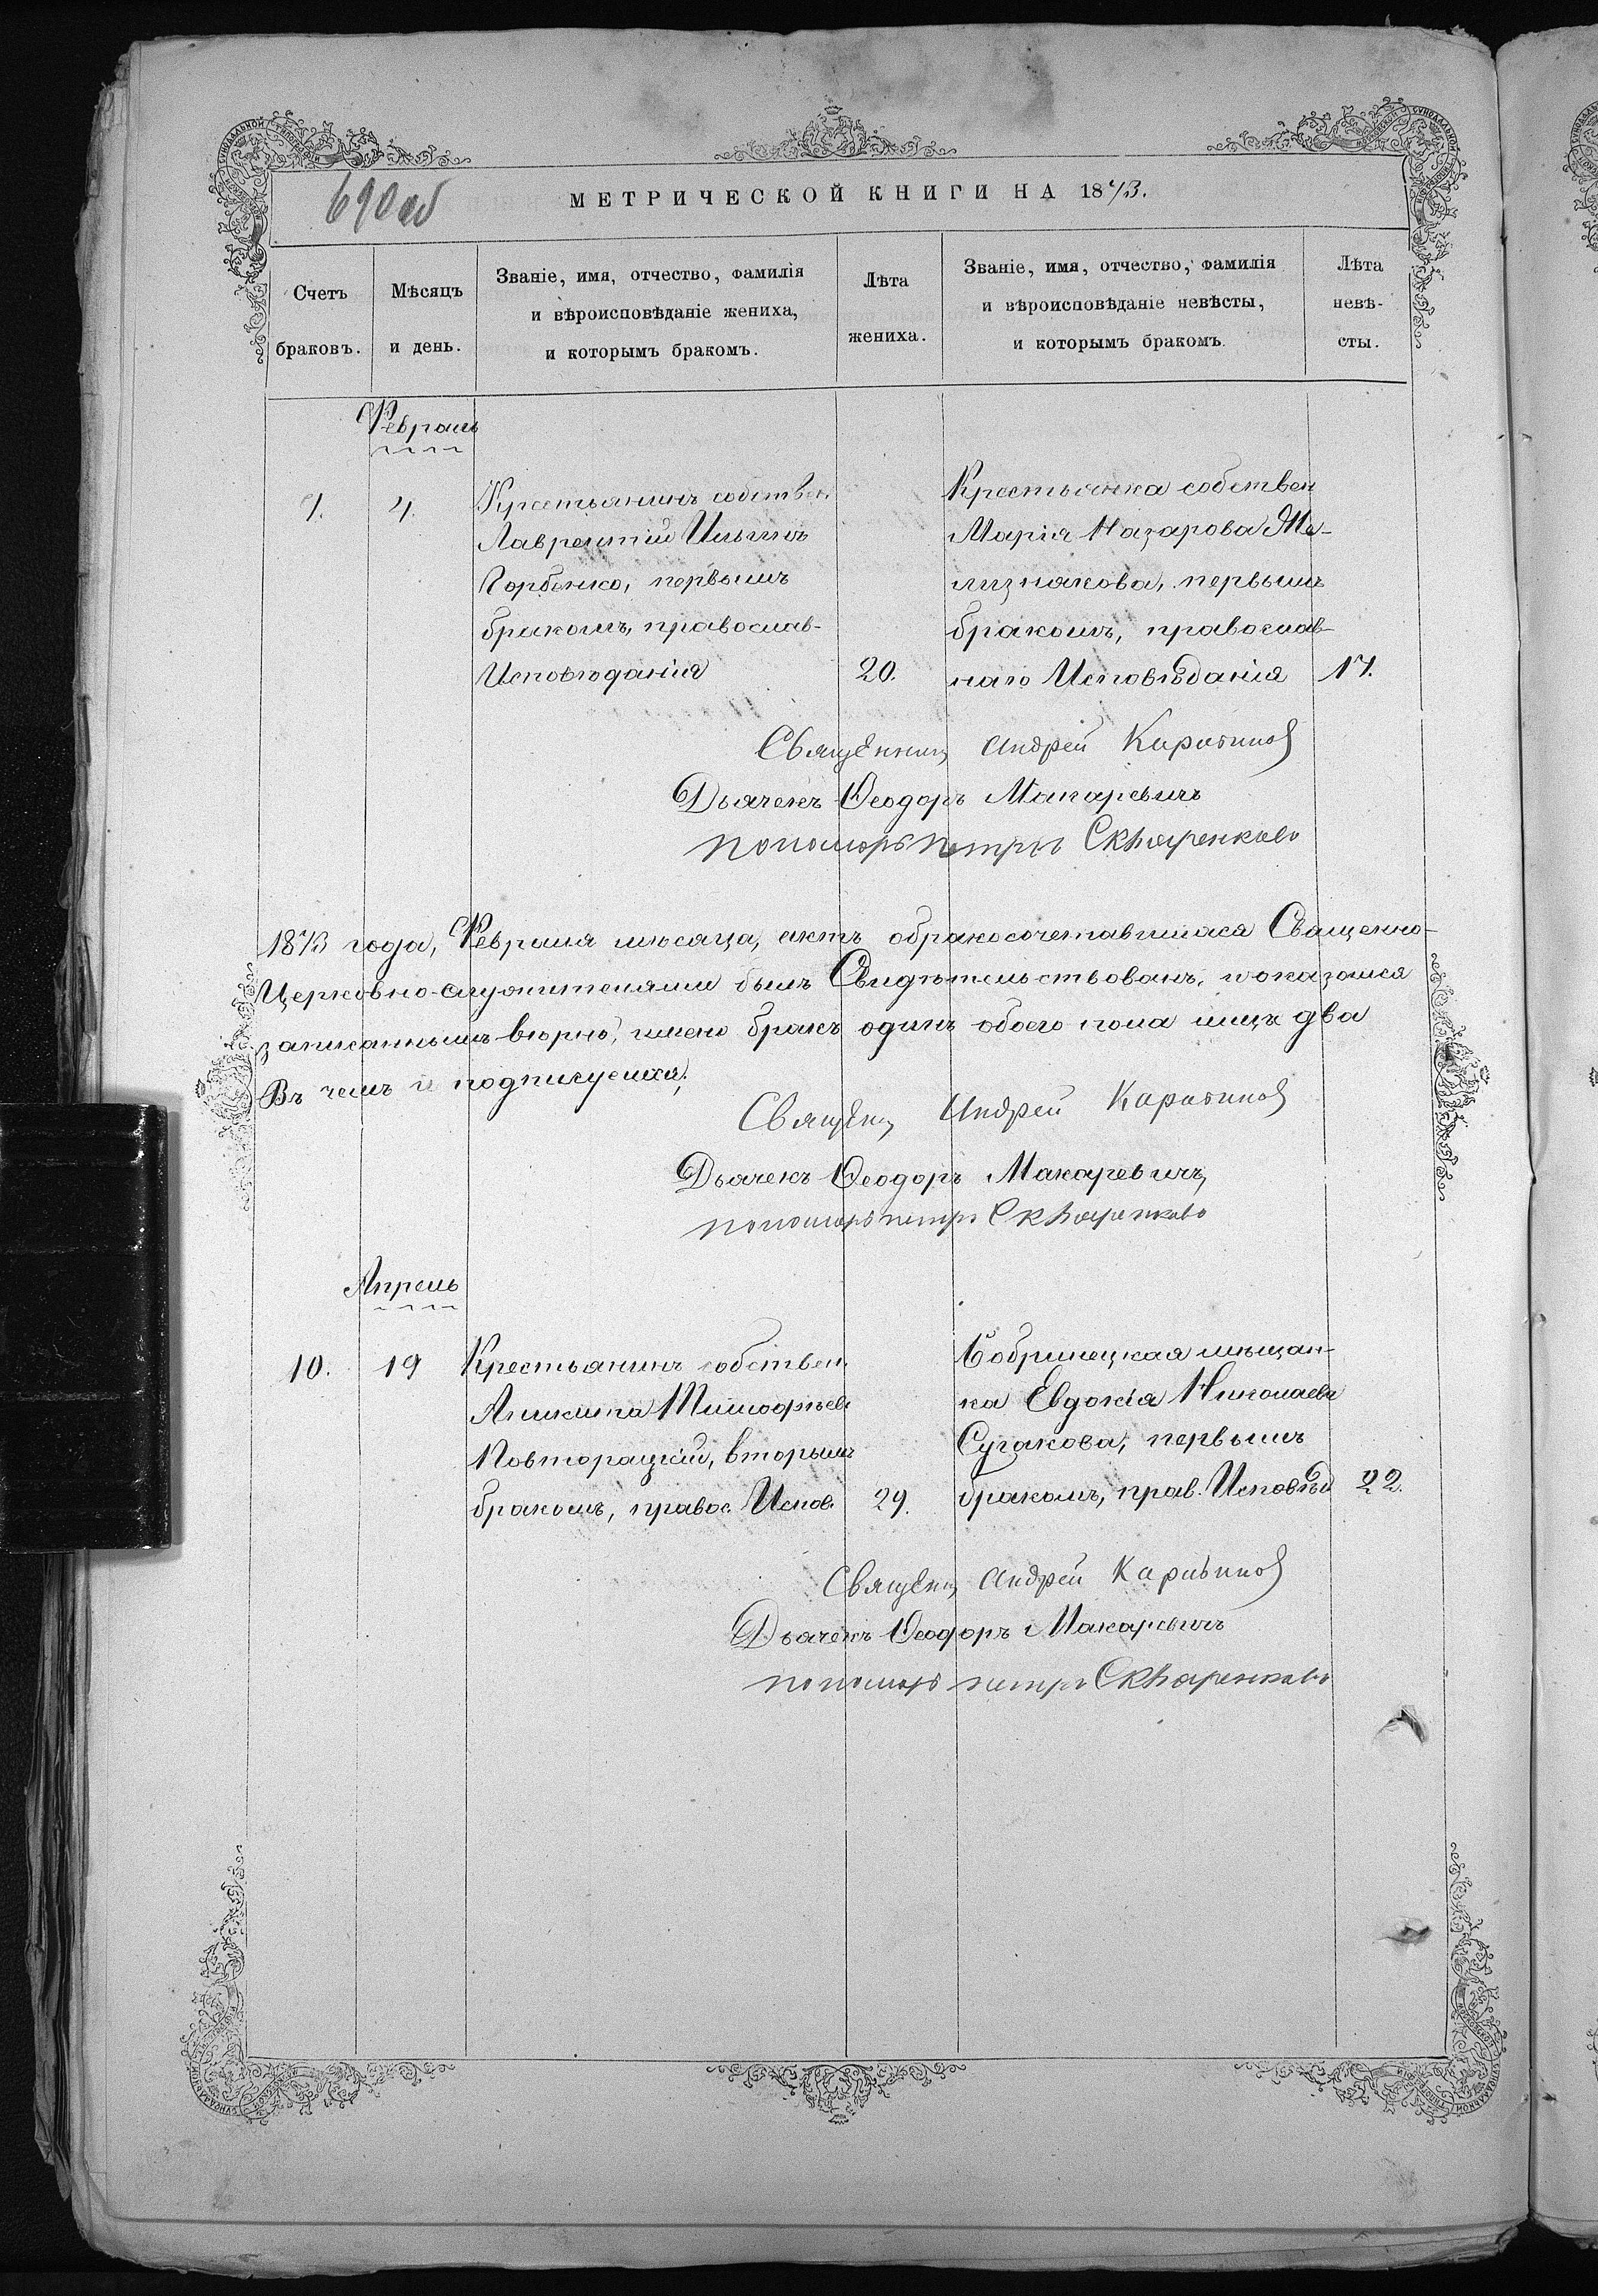 690 об
МЕТРИЧЕСКОЙ КНИГИ НА 1873.
Счетъ браковъ.
Мѣсяцъ и день.
Званіе, имя, отчество, фамилія
и вѣроисповѣданіе жениха,
и которымъ бракомъ.
Лѣта
жениха.
Званіе, имя, отчество, фамилія
и вѣроисповѣданіе невѣсты,
и которымъ бракомъ.
Лѣта
невѣ-
сты.
Февраль
4.
Крестьянинъ собствен.
Лаврентій Ильинъ
Горбенко, первымъ
бракомъ, православ-
Исповѣданія
20.
Крестьянка собствен
Марія Назарова Же-
лизнякова, первымъ
бракомъ, православ-
наго Исповѣданія
17.
Священникъ Андрей
Дьячекъ Ѳеодоръ Макаревичъ
Пономарь Петръ
1873 года, Февраля мѣсяца, актъ обракосочетавшихся Священно-
Церковно-служителями былъ Свидѣтельствованъ, и оказался
записаннымъ вѣрно, имено бракъ одинъ обоего пола лицъ два
Въ чемъ и подписуемся;
Священ Андрей
Дьячекъ Ѳеодоръ Макаревичъ,
пономарь петръ
Апрель
10.
19
Крестьянинъ собствен.
Тимофѣевъ
Повторацкій, вторымъ
бракомъ, правос. Испов.
29.
Бобринецкая мѣщан-
ка Евдокія Николаева
Сугакова, первымъ
бракомъ, прав. Исповѣд
22.
Священ Андрей
Дьячекъ Ѳеодоръ Макаревичъ
пономарь петръ